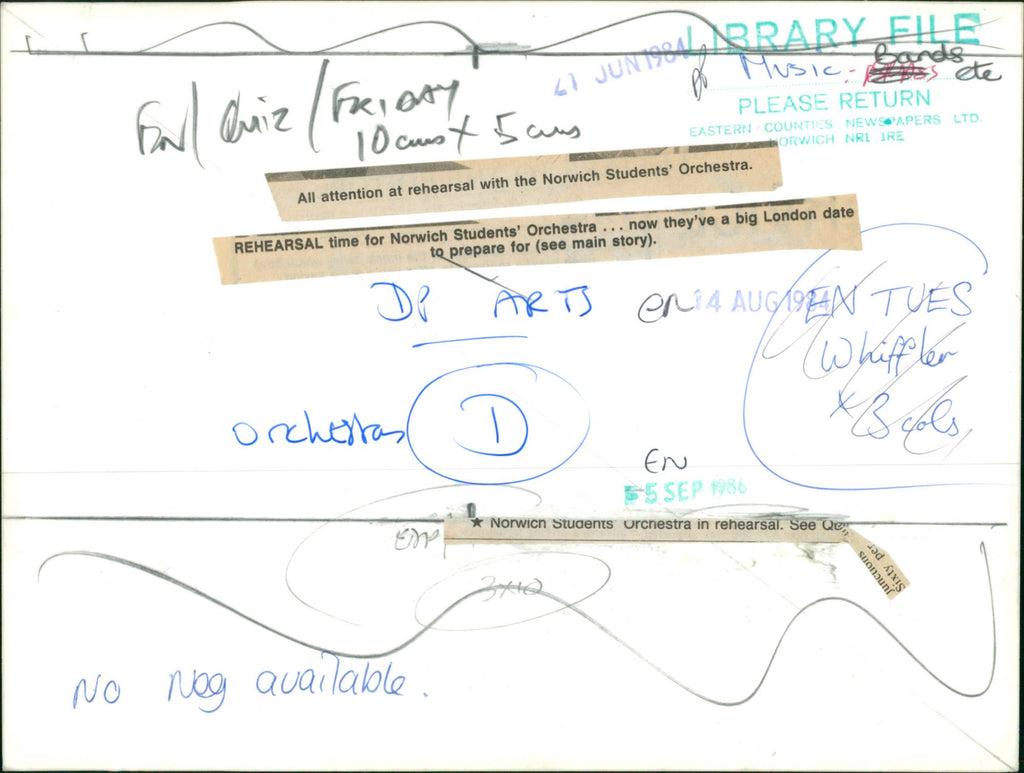 LIBRARY FILE
JUN 1984
Music:- Bands etc
PLEASE RETURN
EASTERN COUNTIES NEWSPAPERS LTD.
NORWICH NR1 1RE
EN/ Quiz / FRIDAY
10cms x 5cms
All attention at rehearsal with the Norwich Students' Orchestra.
REHEARSAL time for Norwich Students' Orchestra ... now they've a big London date
to prepare for (see main story).
DP ARTS
EN 14 AUG 1984
EN TUES
Whiffler
x 3 cols
Orchestras D
EN
-5 SEP 1986
★ Norwich Students' Orchestra in rehearsal. See
Junctions
Sixty per
EDP
3x10
No Neg available.